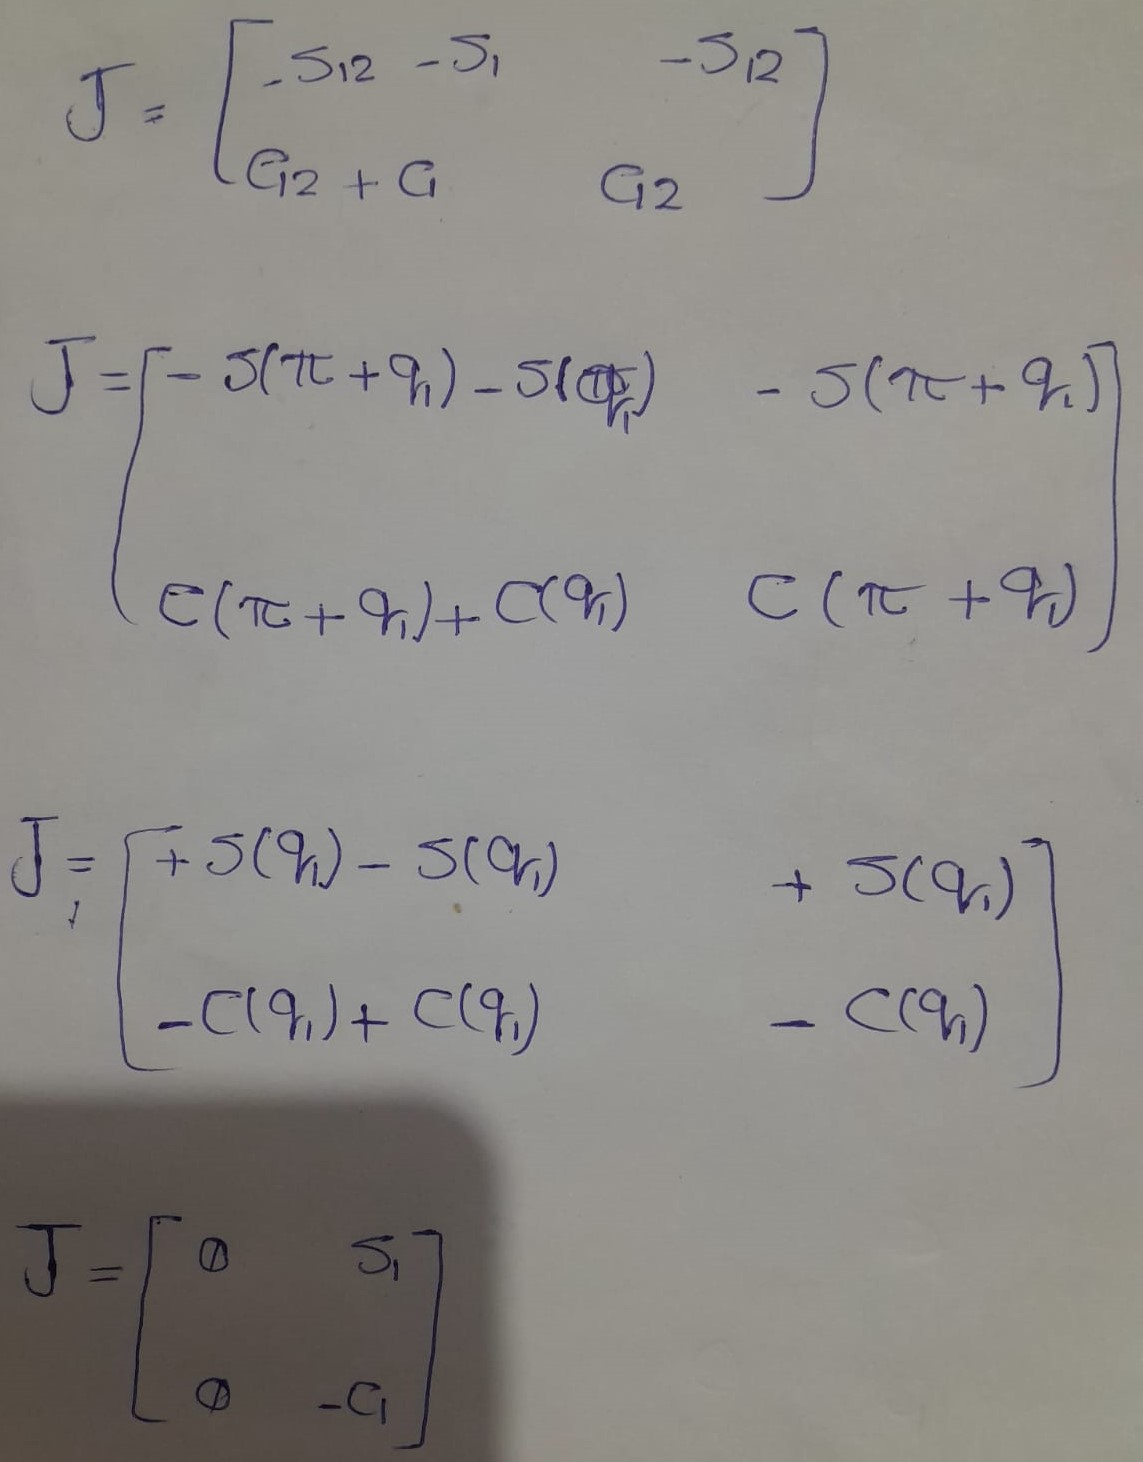 J = [ -S12 -S1   -S12 ]
[ C12 + C1   C12 ]
J = [ - S(π + q1) - S(q1)   - S(π + q1) ]
[ C(π + q1) + C(q1)   C(π + q1) ]
J = [ + S(q1) - S(q1)   + S(q1) ]
[ - C(q1) + C(q1)   - C(q1) ]
J = [ 0   S1 ]
[ 0   -C1 ]